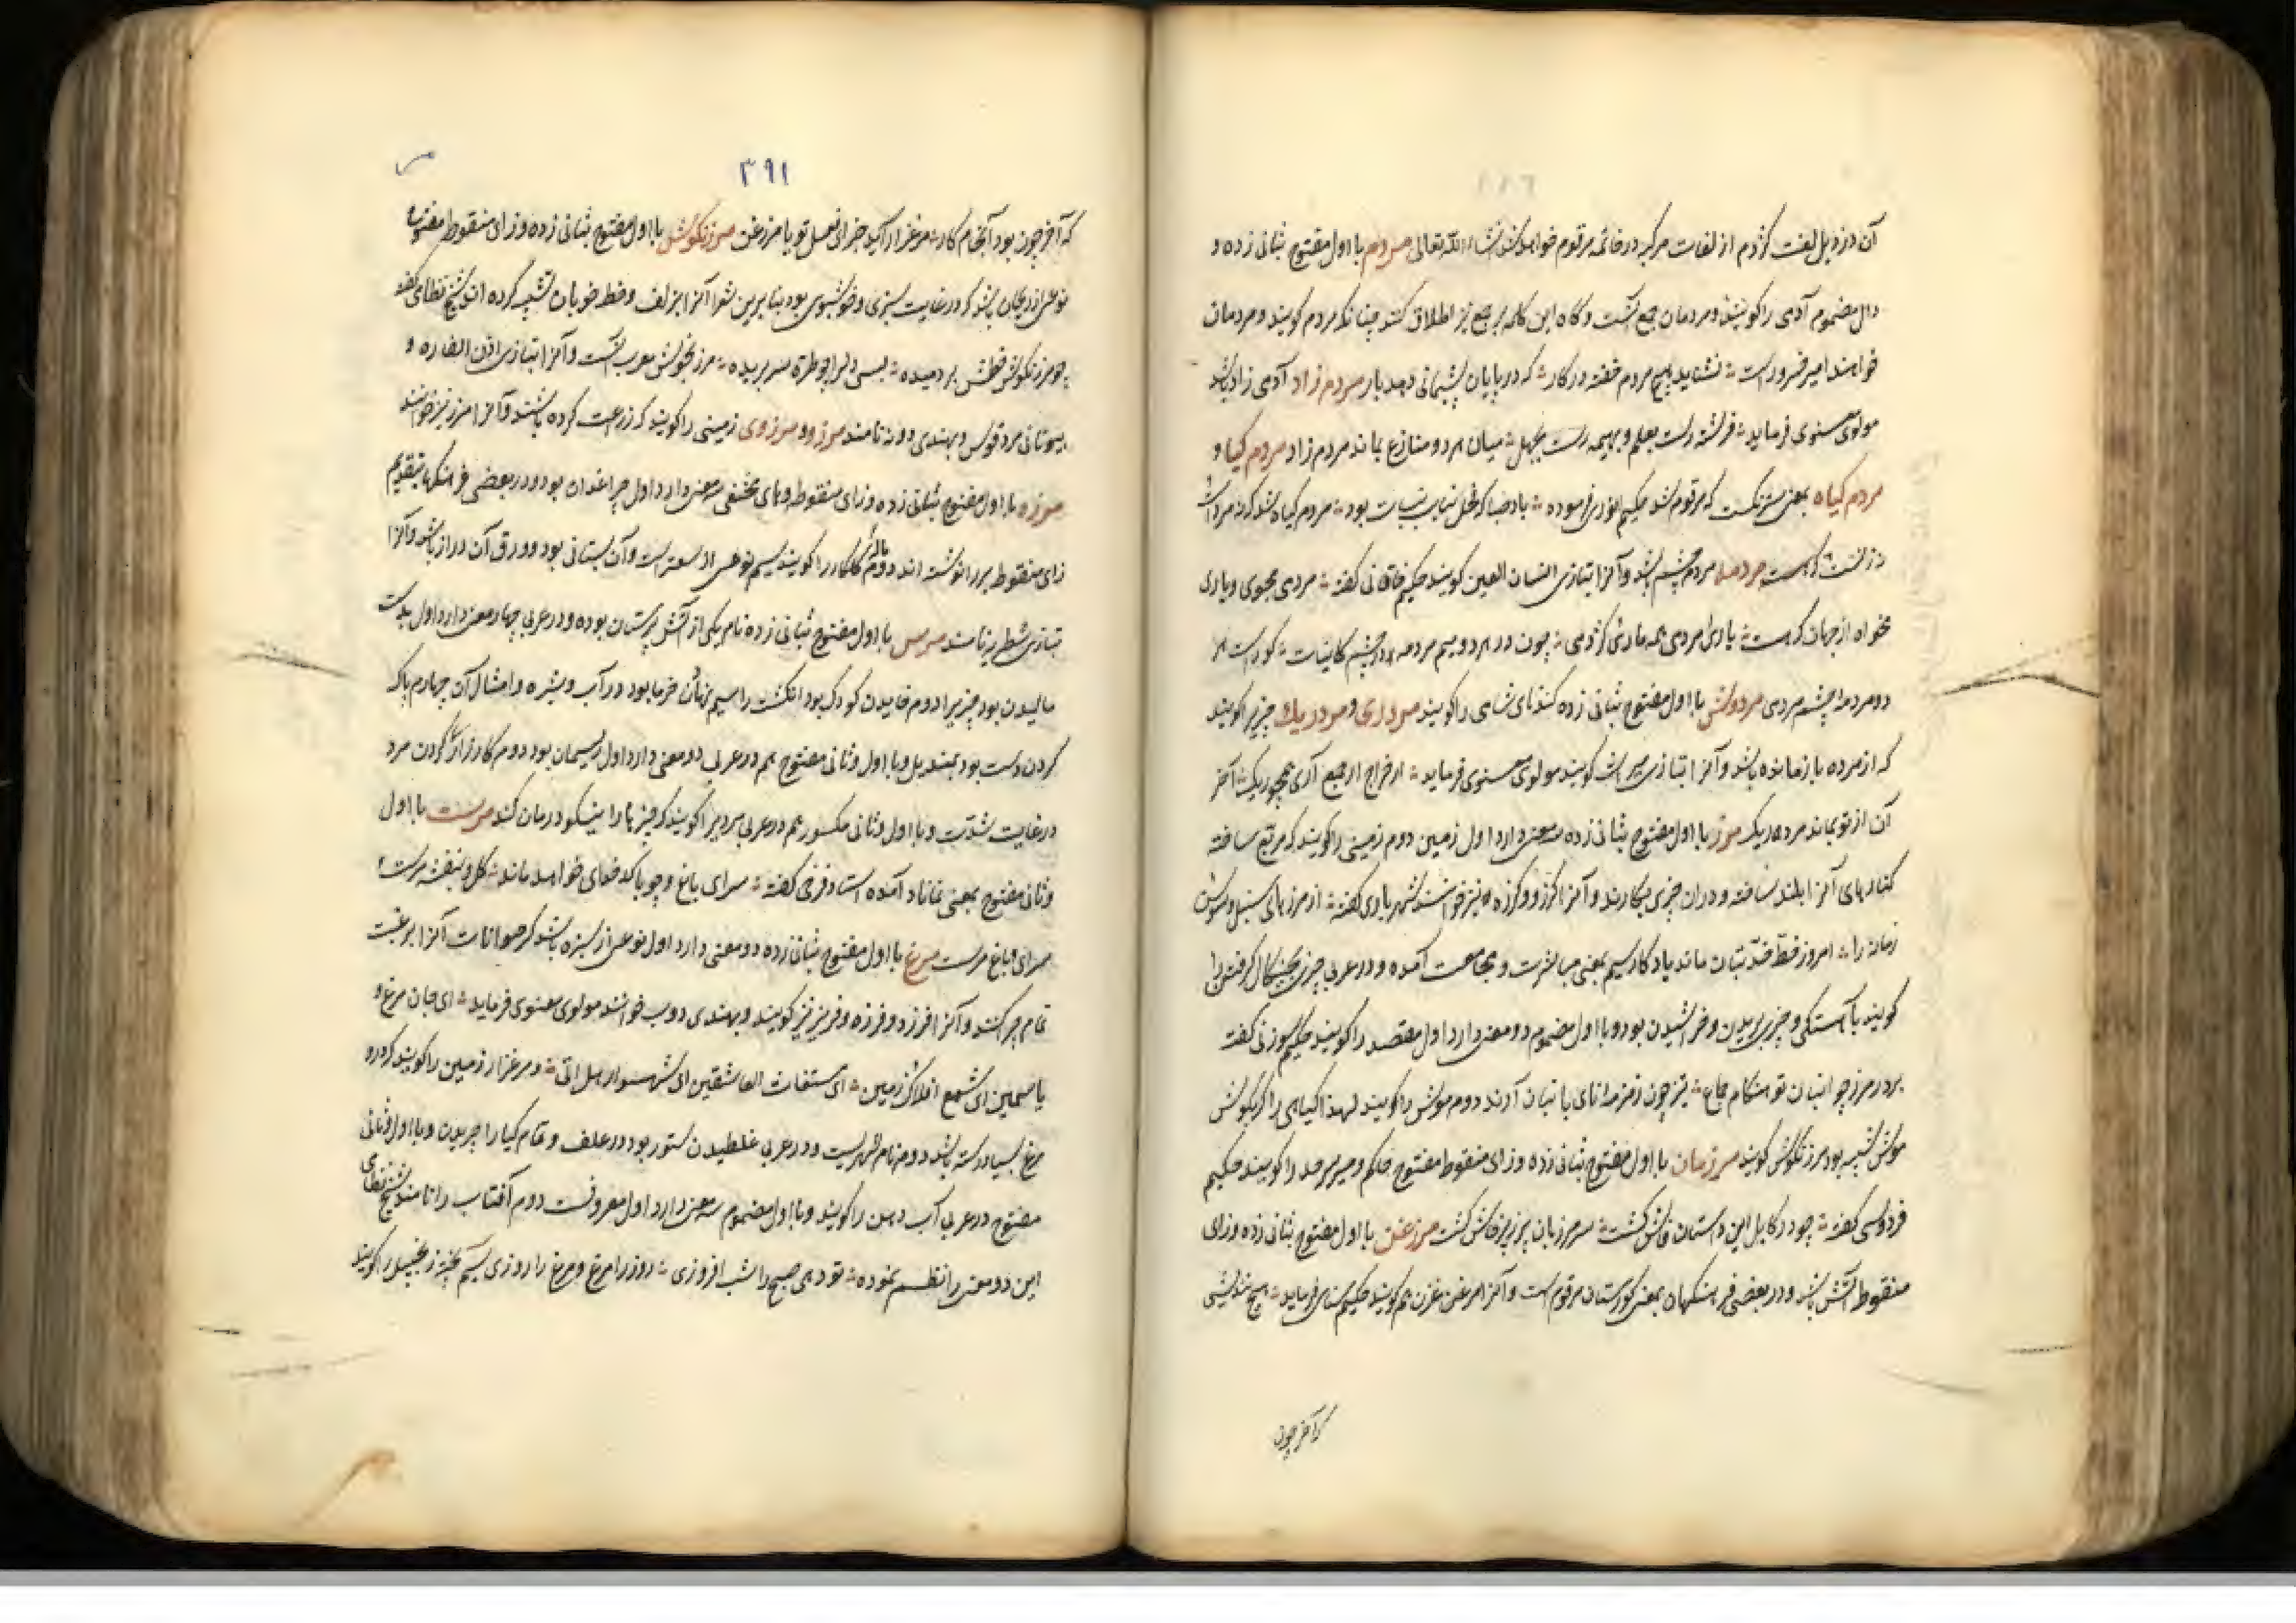 آن در ذیل لغت کژدم از لغات مرکبه در خاتمه مرقوم خواهد شد انشاء الله تعالی مردم با اول مفتوح بثانی زده و
دال مضموم آدمی را گویند و مردمان جمع آنست و گاه این کلمه بر جمع نیز اطلاق کنند چنانکه مردم گویند و مردمان
خواهند امیر خسرو راست نشاید بهیچ مردم خفته در کار که در پایان پشیمانی دهد بار مردم زاد آدمی زاد باشد
مولوی معنوی فرماید فرشته رست بعلم و بهیمه رست بجهل میان هر دو منازع بماند مردم زاد مردم کیا و
مردم کیاه بمعنی سترنگست که مرقوم شد حکیم انوری فرموده باد صبا که فحل بنات نبات بود مردم کیاه شد که نه مرد است
نه زنست مردمه مردم چشم باشد و آنرا بتازی انسان العین گویند حکیم خاقانی گفته مردمی مجوی و یاری
مخواه از جهان که هست یاری مردمی همه ماری کژدمی چون در هر دو میم مردمه در چشم کاینات کورست هر
دو مردمه چشم مردمی مردوش با اول مفتوح بثانی زده گندنای شامی را گویند مرداری و مرده ریک چیزیرا گویند
که از مرده باز مانده باشد و آنرا بتازی میراث گویند مولوی معنوی فرماید
آن از تو بماند مرده ریک مرز با اول مفتوح بثانی زده سه معنی دارد اول زمین دوم زمینی را گویند که مربع ساخته
کنارهای آنرا بلند ساخته و در آن چیزی میکارند و آنرا کرز و کرزه نیز خوانند شهریاری گفته از مرزهای سنبل و سوسن
زمانه را امروز قط خد بتان ماند یادگار سیم بمعنی مباشرت و مجامعت آمده و در عربی چیزی بچنگال گرفتن را
گویند بآهستگی و چیزی بریدن و خراشیدن بود و با اول مضموم دو معنی دارد اول مقعد را گویند حکیم سوزنی گفته
بردر مرز چو انبان تو هنگام جماع تیز چون زمزمه نای با نبان آرند دوم موش را گویند لهذا گیاهی را که بگوش
موش شبیه بود مرزنگوش گویند مرزبان با اول مفتوح بثانی زده و زای منقوط مفتوح حاکم و میر سرحد را گویند حکیم
فردوسی گفته چو در کابل این داستان فاش گشت سر مرزبان پر ز پرخاش گشت مرزغن با اول مفتوح بثانی زده و زای
منقوط آتش باشد و در بعضی فرهنگها بمعنی گورستان مرقوم است و آنرا مرغزن هم گویند حکیم سنائی فرماید هیچ نندیشی
که آخر چون
٣٩١
که آخر چون بود انجام کار مرزنگوش با اول مفتوح بثانی زده و زای منقوط مفتوح
نوعی از ریحان باشد که در غایت سبزی و خوشبوی بود بنابرین شعرا آنرا بزلف و خط خوبان تشبیه کرده اند شیخ نظامی گفته
چو مرزنگوش خطش بر دمیده بسی دل را چو طره سر بریده مرزنجوش معرب آنست و آنرا بتازی اذن الفاره و
بیونانی مردقوش و بهندی دونه نامند مرزه و مرزوی زمینی را گویند که زراعت کرده باشند و آنرا مرز نیز خوانند
مرزه با اول مفتوح بثانی زده و زای منقوطه و های مختفی سه معنی دارد اول چراغدان بود و در بعضی فرهنگها بتقدیم
زای منقوط بر را نوشته اند دوم ماله گلکار را گویند سیم نوعی از سعتر است و آن بستانی بود و ورق آن دراز باشد و آنرا
بتازی شطریه نامند مرس با اول مفتوح بثانی زده نام یکی از آتش پرستان بوده و در عربی چهار معنی دارد اول بدست
مالیدن بود چیزیرا دوم خاییدن کودک بود انگشت را سیم نهادن خرما بود در آب و شیره و امثال آن چهارم پاک
کردن دست بود بمندیل و با اول و ثانی مفتوح هم در عربی دو معنی دارد اول ریسمان بود دوم کارزار کردن مرد
در غایت شدت و با اول و ثانی مکسور هم در عربی مردیرا گویند که چیزها را نیکو درمان کند مرست با اول
و ثانی مفتوح بمعنی نماناد آمده استاد فرخی گفته سرای باغ و چو با کدخدای خواهد ماند گل و بنفشه مرست
سرای و باغ مرست مرغ با اول مفتوح بثانی زده دو معنی دارد اول نوعی از سبزه باشد که حیوانات آنرا برغبت
تمام چرا کنند و آنرا فرزد و فرزه و فریز نیز گویند و بهندی دوب خوانند مولوی معنوی فرماید ای جان مرغ و
یاسمین ای شمع افلاک و زمین ای مستغاث العاشقین ای شهسوار هل اتی و مرغزار زمین را گویند که درو
مرغ بسیار رسته باشد دوم نام شهریست و در عربی غلطیدن ستور بود در علف و تمام گیا را چریدن و با اول و ثانی
مفتوح در عربی آب دهن را گویند و با اول مضموم سه معنی دارد اول معروفست دوم آفتاب را نامند شیخ نظامی
این دو معنی را نظم نموده تو دهی صبح را شب افروزی روز را مرغ و مرغ را روزی سیم پخته زنجبیل را گویند